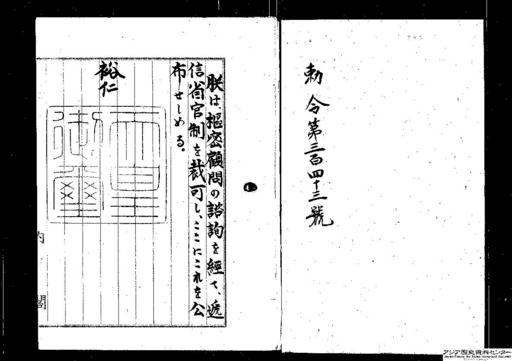 勅令第三百四十三號
朕は、樞密顧問の諮詢を經て、遞
信省官制を裁可し、ここにこれを公
布せしめる。
裕仁
天皇御璽
内閣
アジア歴史資料センター